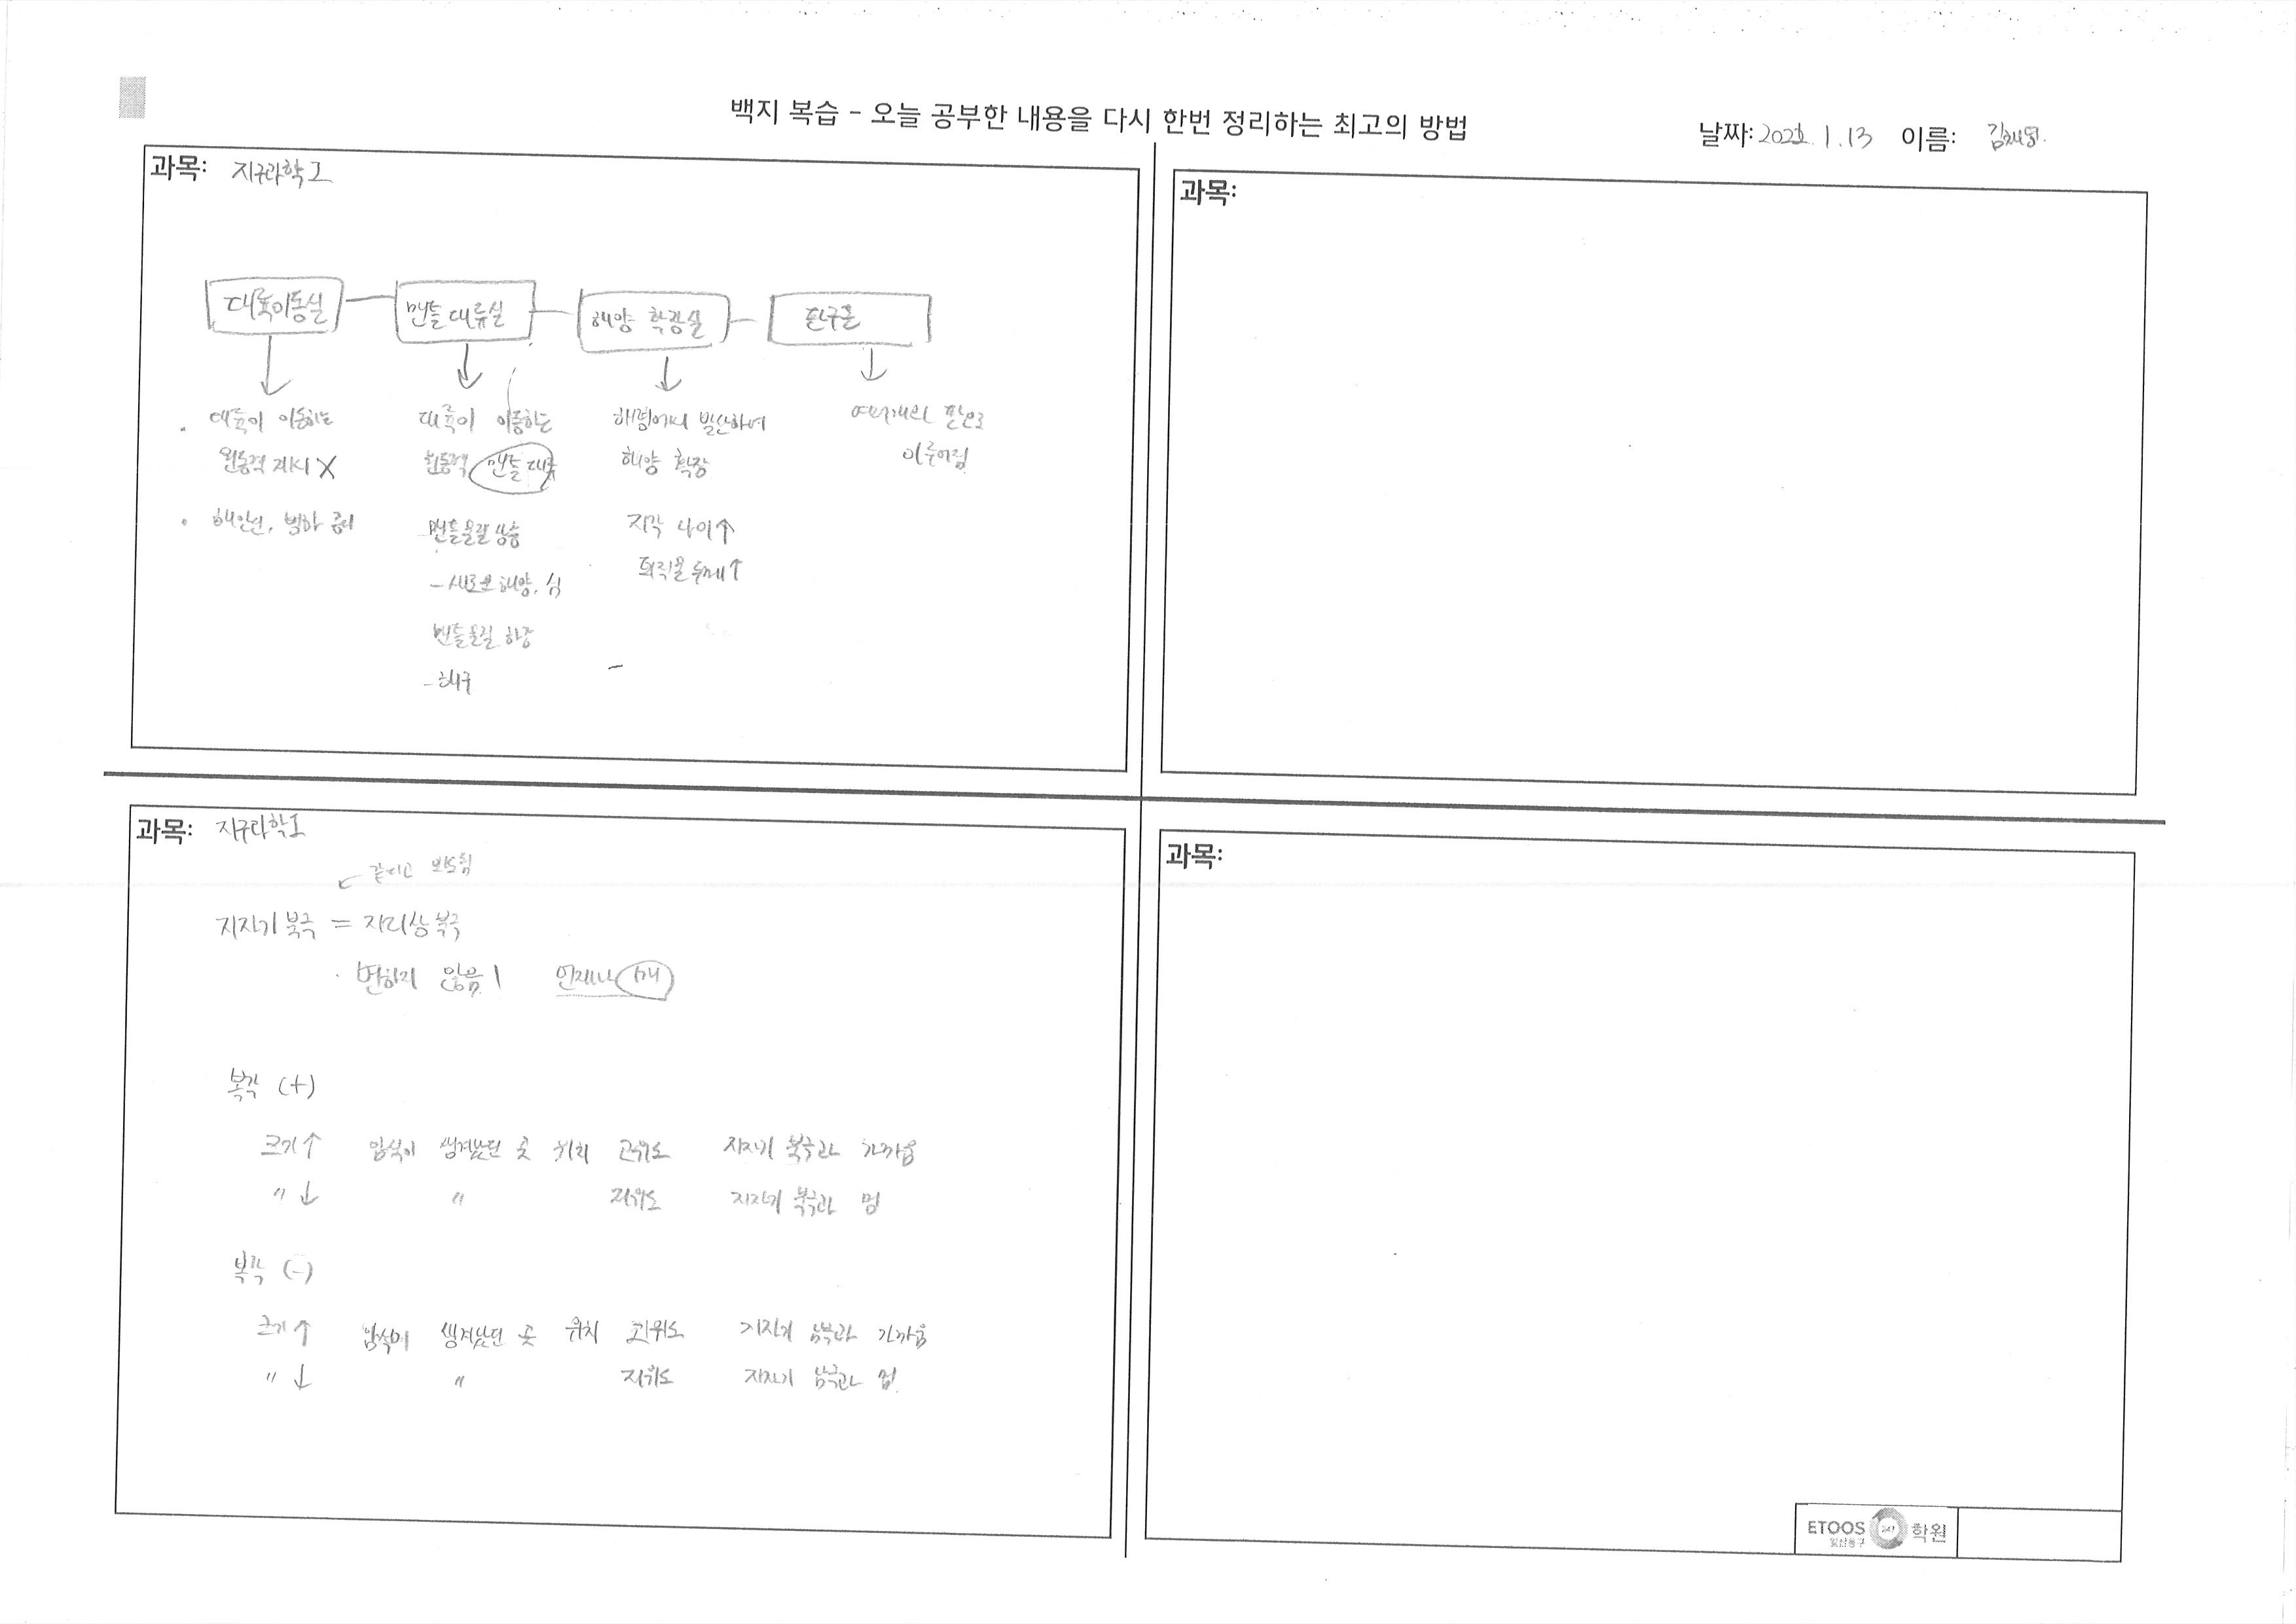 백지 복습 - 오늘 공부한 내용을 다시 한번 정리하는 최고의 방법
날짜: 1.13 이름:
과목: 지구과학I
대륙이동설
맨틀대류설
해양 확장설
판구조론
대륙이 이동하는
원동력 제시X
해안선, 빙하 증거
대륙이 이동하는
원동력 맨틀 대류
맨틀물질 상승
- 새로운 해양,
맨틀물질 하강
- 해구
해령에서 발산하여
해양 확장
지각 나이↑
퇴적물 두께↑
여러개의 판으로
이루어짐
과목:
과목: 지구과학I
지자기 북극 = 지리상 북극
· 변하지 않음! 언제나 1개
복각 (+)
크기↑ 암석이 생겨났던 곳 위치 고위도 지자기 북극과 가까움
〃↓ 〃 저위도 지자기 북극과 멈
복각 (-)
크기↑ 암석이 생겨났던 곳 위치 고위도 지자기 남극과 가까움
〃↓ 〃 저위도 지자기 남극과 멈
과목:
ETOOS 247 학원